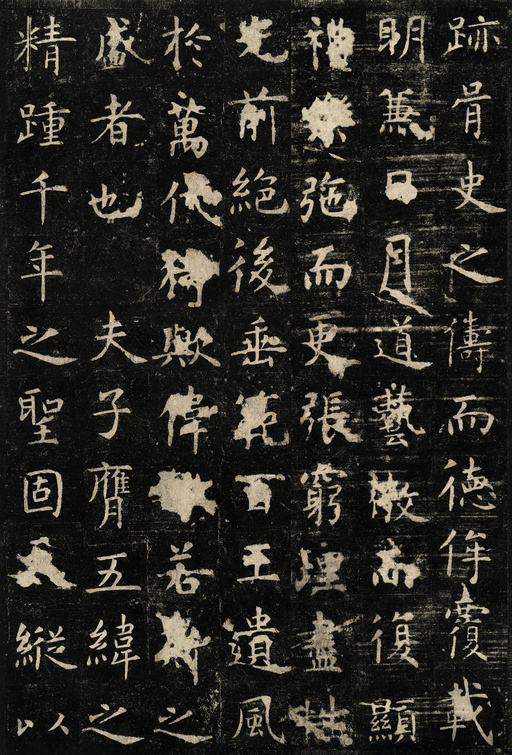 跡胥史之儔而德侔覆載
明兼日月道藝微而復顯
禮弛而更張窮理盡性
光前絕後垂範百王遺風
於萬代猗歟偉若之
盛者也夫子膺五緯之
精踵千年之聖固天縱以